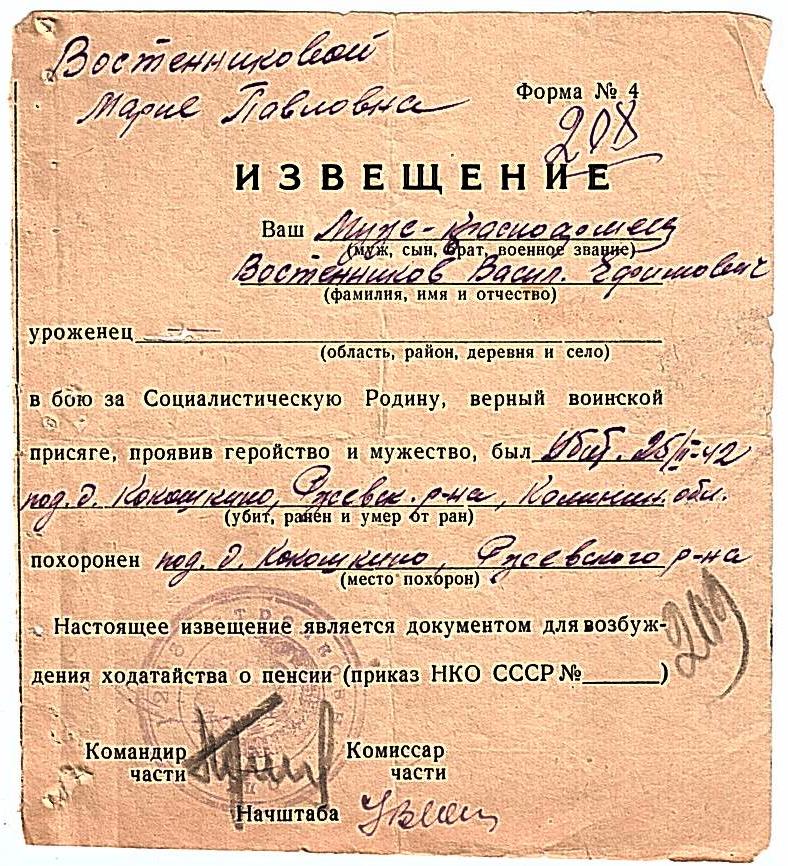 Востенниковой
Марие Павловна
Форма № 4
208
ИЗВЕЩЕНИЕ
Ваш Муж - Красноармеец
(муж, сын, брат, военное звание)
Востенников Васил. Ефимович
(фамилия, имя и отчество)
уроженец
(область, район, деревня и село)
в бою за Социалистическую Родину, верный воинской
присяге, проявив геройство и мужество, был Убит. 26/II-42
под. д. Кокошкино, Ржевск. р-на, Калинин. обл.
(убит, ранен и умер от ран)
похоронен под. д. Кокошкино, Ржевского р-на
(место похорон)
Настоящее извещение является документом для возбуж-
дения ходатайства о пенсии (приказ НКО СССР № )
Командир Комиссар
части части
Начштаба